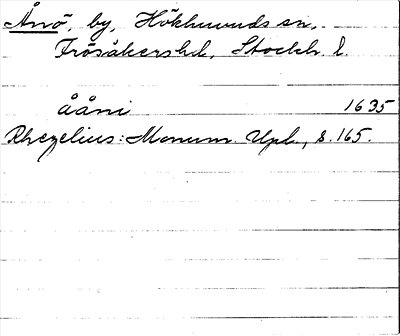 Ånö, by, Hökhuvuds sn,
Frösåkers hd, Stockh. l.
ååni 1635
Rhezelius: Monum. Upl., s. 165.